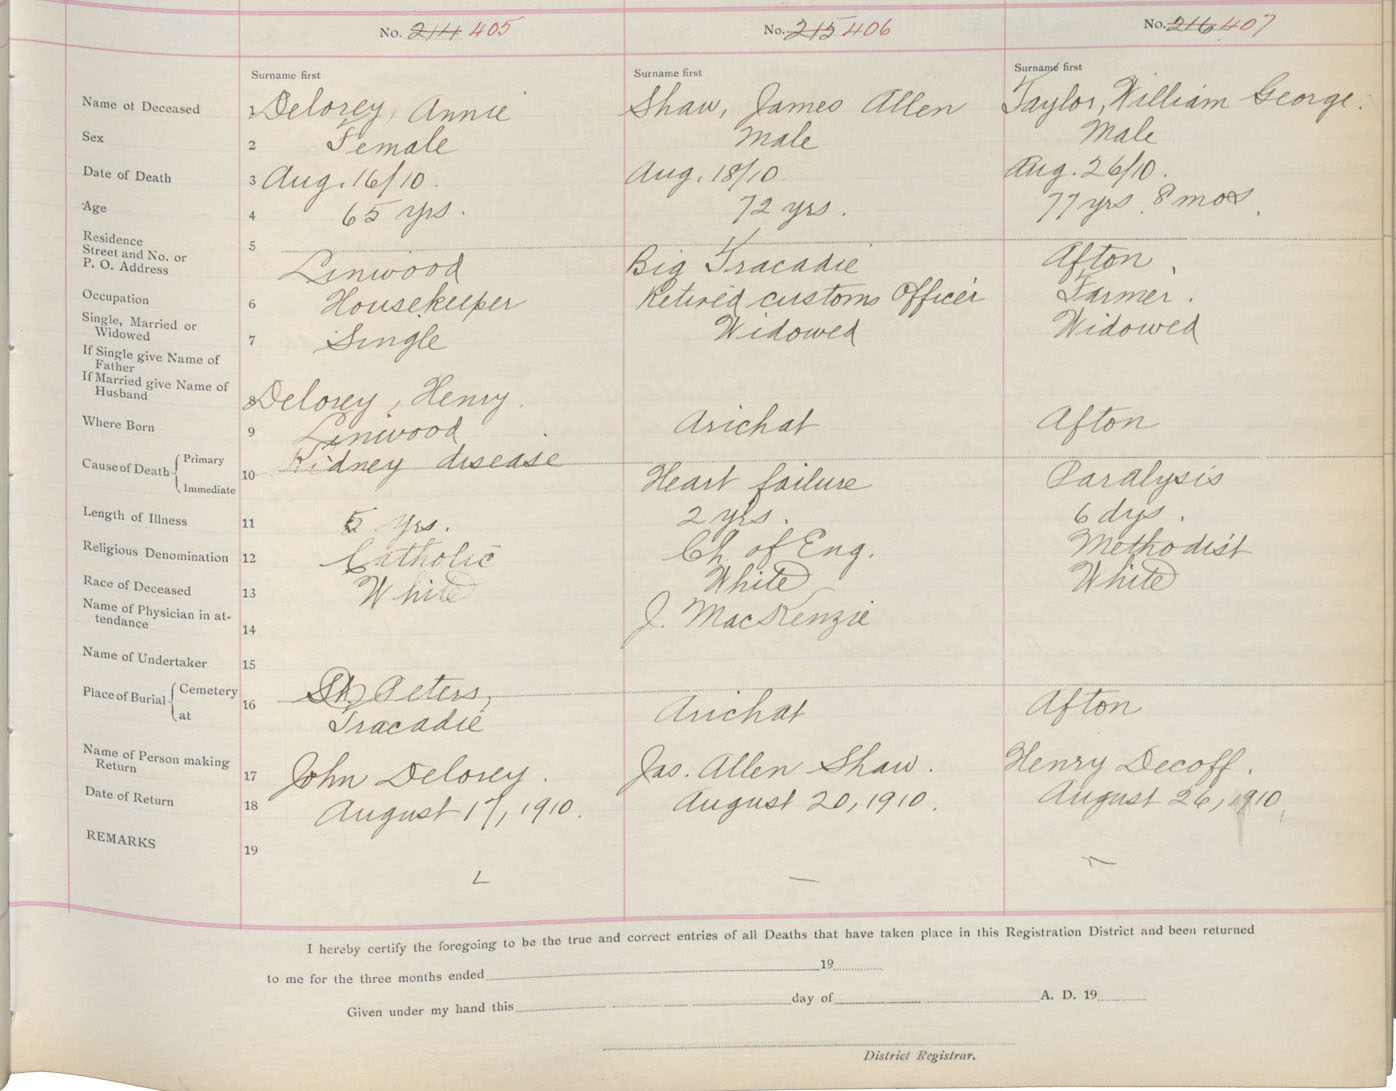 No. 214 405 No. 215 406 No. 216 407
Surname first Surname first Surname first
Name of Deceased 1 Delorey, Annie Shaw, James Allen Taylor, William George.
Sex 2 Female Male Male
Date of Death 3 Aug. 16/10. Aug. 18/10 Aug. 26/10.
Age 4 65 yrs. 72 yrs. 77 yrs. 8 mos.
Residence 5
Street and No. or
P. O. Address Linwood Big Tracadie Afton
Occupation 6 Housekeeper Retired customs Officer Farmer.
Single, Married or
Widowed 7 Single Widowed Widowed
If Single give Name of
Father
If Married give Name of
Husband 8 Delorey, Henry.
Where Born 9 Linwood Arichat Afton
Cause of Death Primary Kidney disease
10 Heart failure Paralysis
Immediate
Length of Illness 11 5 yrs. 2 yrs. 6 dys.
Religious Denomination 12 Catholic Ch. of Eng. Methodist
Race of Deceased 13 White White White
Name of Physician in at-
tendance 14 J. MacKenzie
Name of Undertaker 15
Place of Burial Cemetery 16 St. Peters,
at Tracadie Arichat Afton
Name of Person making
Return 17 John Delorey. Jas. Allen Shaw. Henry Decoff.
Date of Return 18 August 17, 1910. August 20, 1910. August 26, 1910.
REMARKS 19
I hereby certify the foregoing to be the true and correct entries of all Deaths that have taken place in this Registration District and been returned
to me for the three months ended 19
Given under my hand this day of A. D. 19
District Registrar.